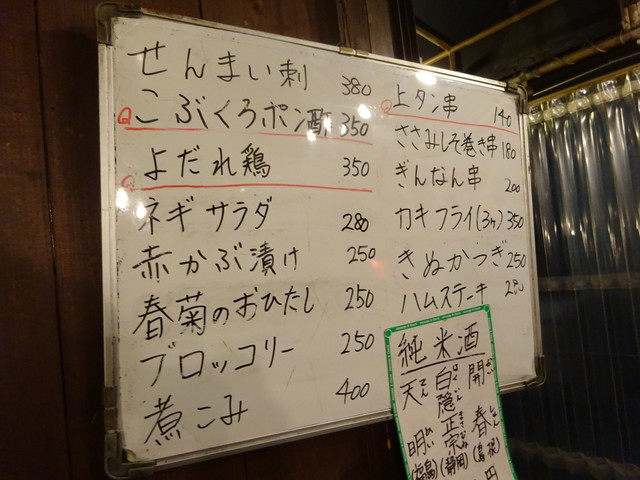 せんまい刺 380
こぶくろポン酢 350
よだれ鶏 350
ネギサラダ 280
赤かぶ漬け 250
春菊のおひたし 250
ブロッコリー 250
煮こみ 400
上タン串 140
ささみしそ巻き串 180
ぎんなん串 200
カキフライ(3ヶ) 350
きぬかつぎ 250
ハムステーキ
純米酒
開春
白隠正宗
(静岡)
天明
円